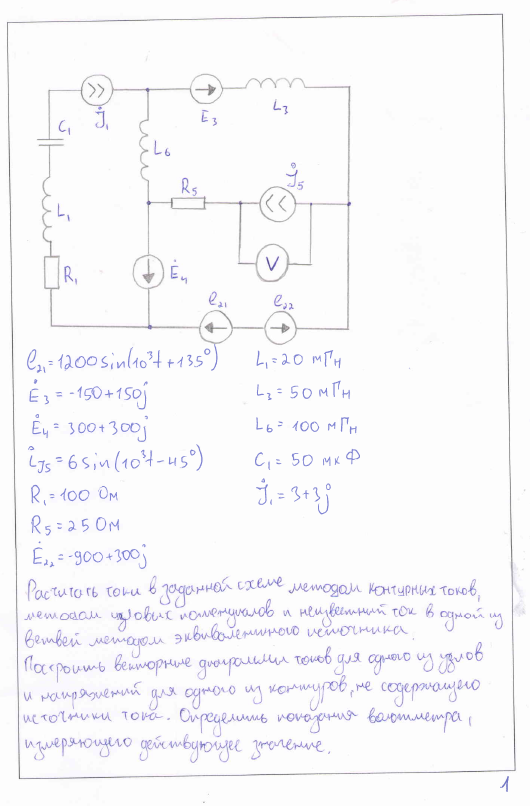 J̇₁
E₃
L₃
C₁
L₆
R₅
J̇₅
L₁
V
R₁
Ė₄
e₂₁
e₂₂
e₂₁=1200sin(10³t+135°)
L₁=20 мГн
Ė₃=-150+150j
L₃=50 мГн
Ė₄=300+300j
L₆=100 мГн
i_J5=6sin(10³t-45°)
C₁=50 мкФ
R₁=100 Ом
J̇₁=3+3j
R₅=25 Ом
Ė₂₂=-900+300j
Расчитать токи в заданной схеме методом контурных токов,
методом узловых потенциалов и неизвестний ток в одной из
ветвей методом эквивалентного источника.
Построить векторные диаграммы токов для одного из узлов
и напряжений для одного из контуров, не содержащего
источники тока. Определить показания вольтметра,
измеряющего действующее значение.
1